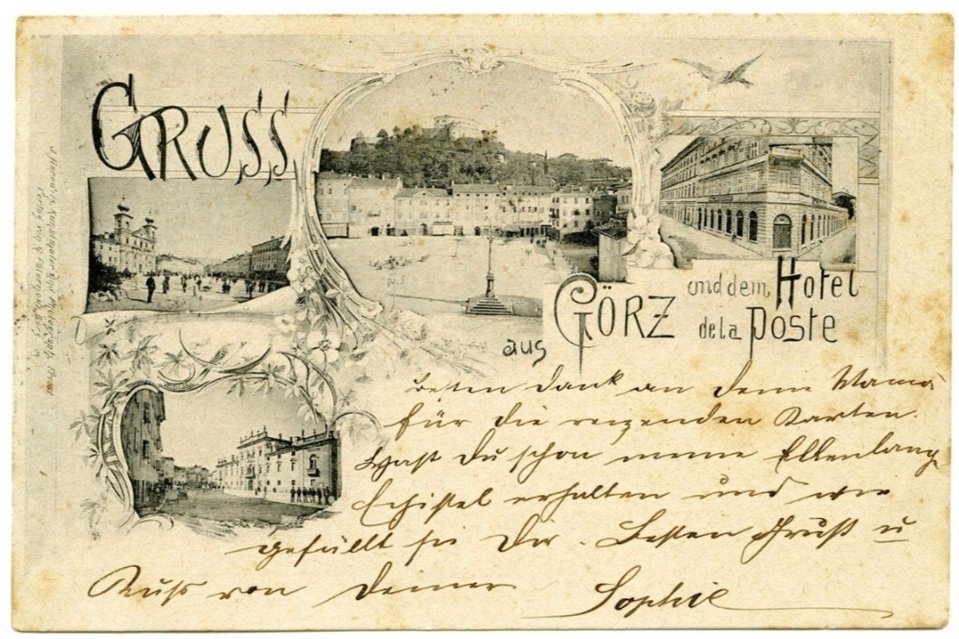 GRUSS
aus GÖRZ und dem Hotel
de la Poste
Besten Dank an deine Mama
für die reizenden Karten.
Hast Du schon meine Ellenlange
Epistel erhalten und wie
gefällt sie Dir. Besten Gruß u
Kuss von Deiner Sophie